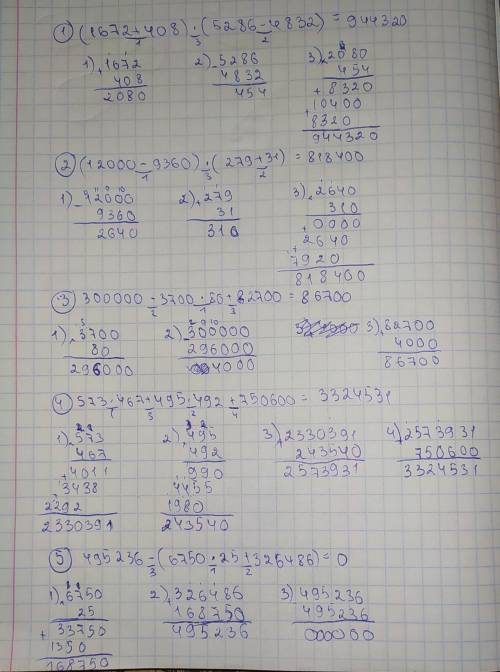 1) (1672+408)·(5286-4832)=944320
1 3 2
1) +1672 2) -5286 3) ×2080
408 4832 454
2080 454 +8320
10400
+8320
944320
2) (12000-9360)·(279+31)=818400
1 3 2
1) -12000 2) +279 3) ×2640
9360 31 310
2640 310 +0000
+2640
7920
818400
3) 300000-3700·80+82700=86700
2 1 3
1) ×3700 2) -300000 3) +82700
80 296000 4000
296000 4000 86700
4) 573·467+495·492+750600=3324531
1 3 2 4
1) ×573 2) ×495 3) +2330391 4) +2573931
467 492 243540 750600
+4011 +990 2573931 3324531
+3438 +4455
2292 1980
2330391 243540
5) 495236-(6750·25+326486)=0
3 1 2
1) ×6750 2) +326486 3) -495236
25 168750 495236
+33750 495236 000000
1350
168750